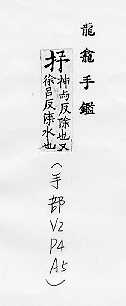 龍龕手鑑
抒
神与反除也又
徐呂反除水也
(手部V2P4A5)